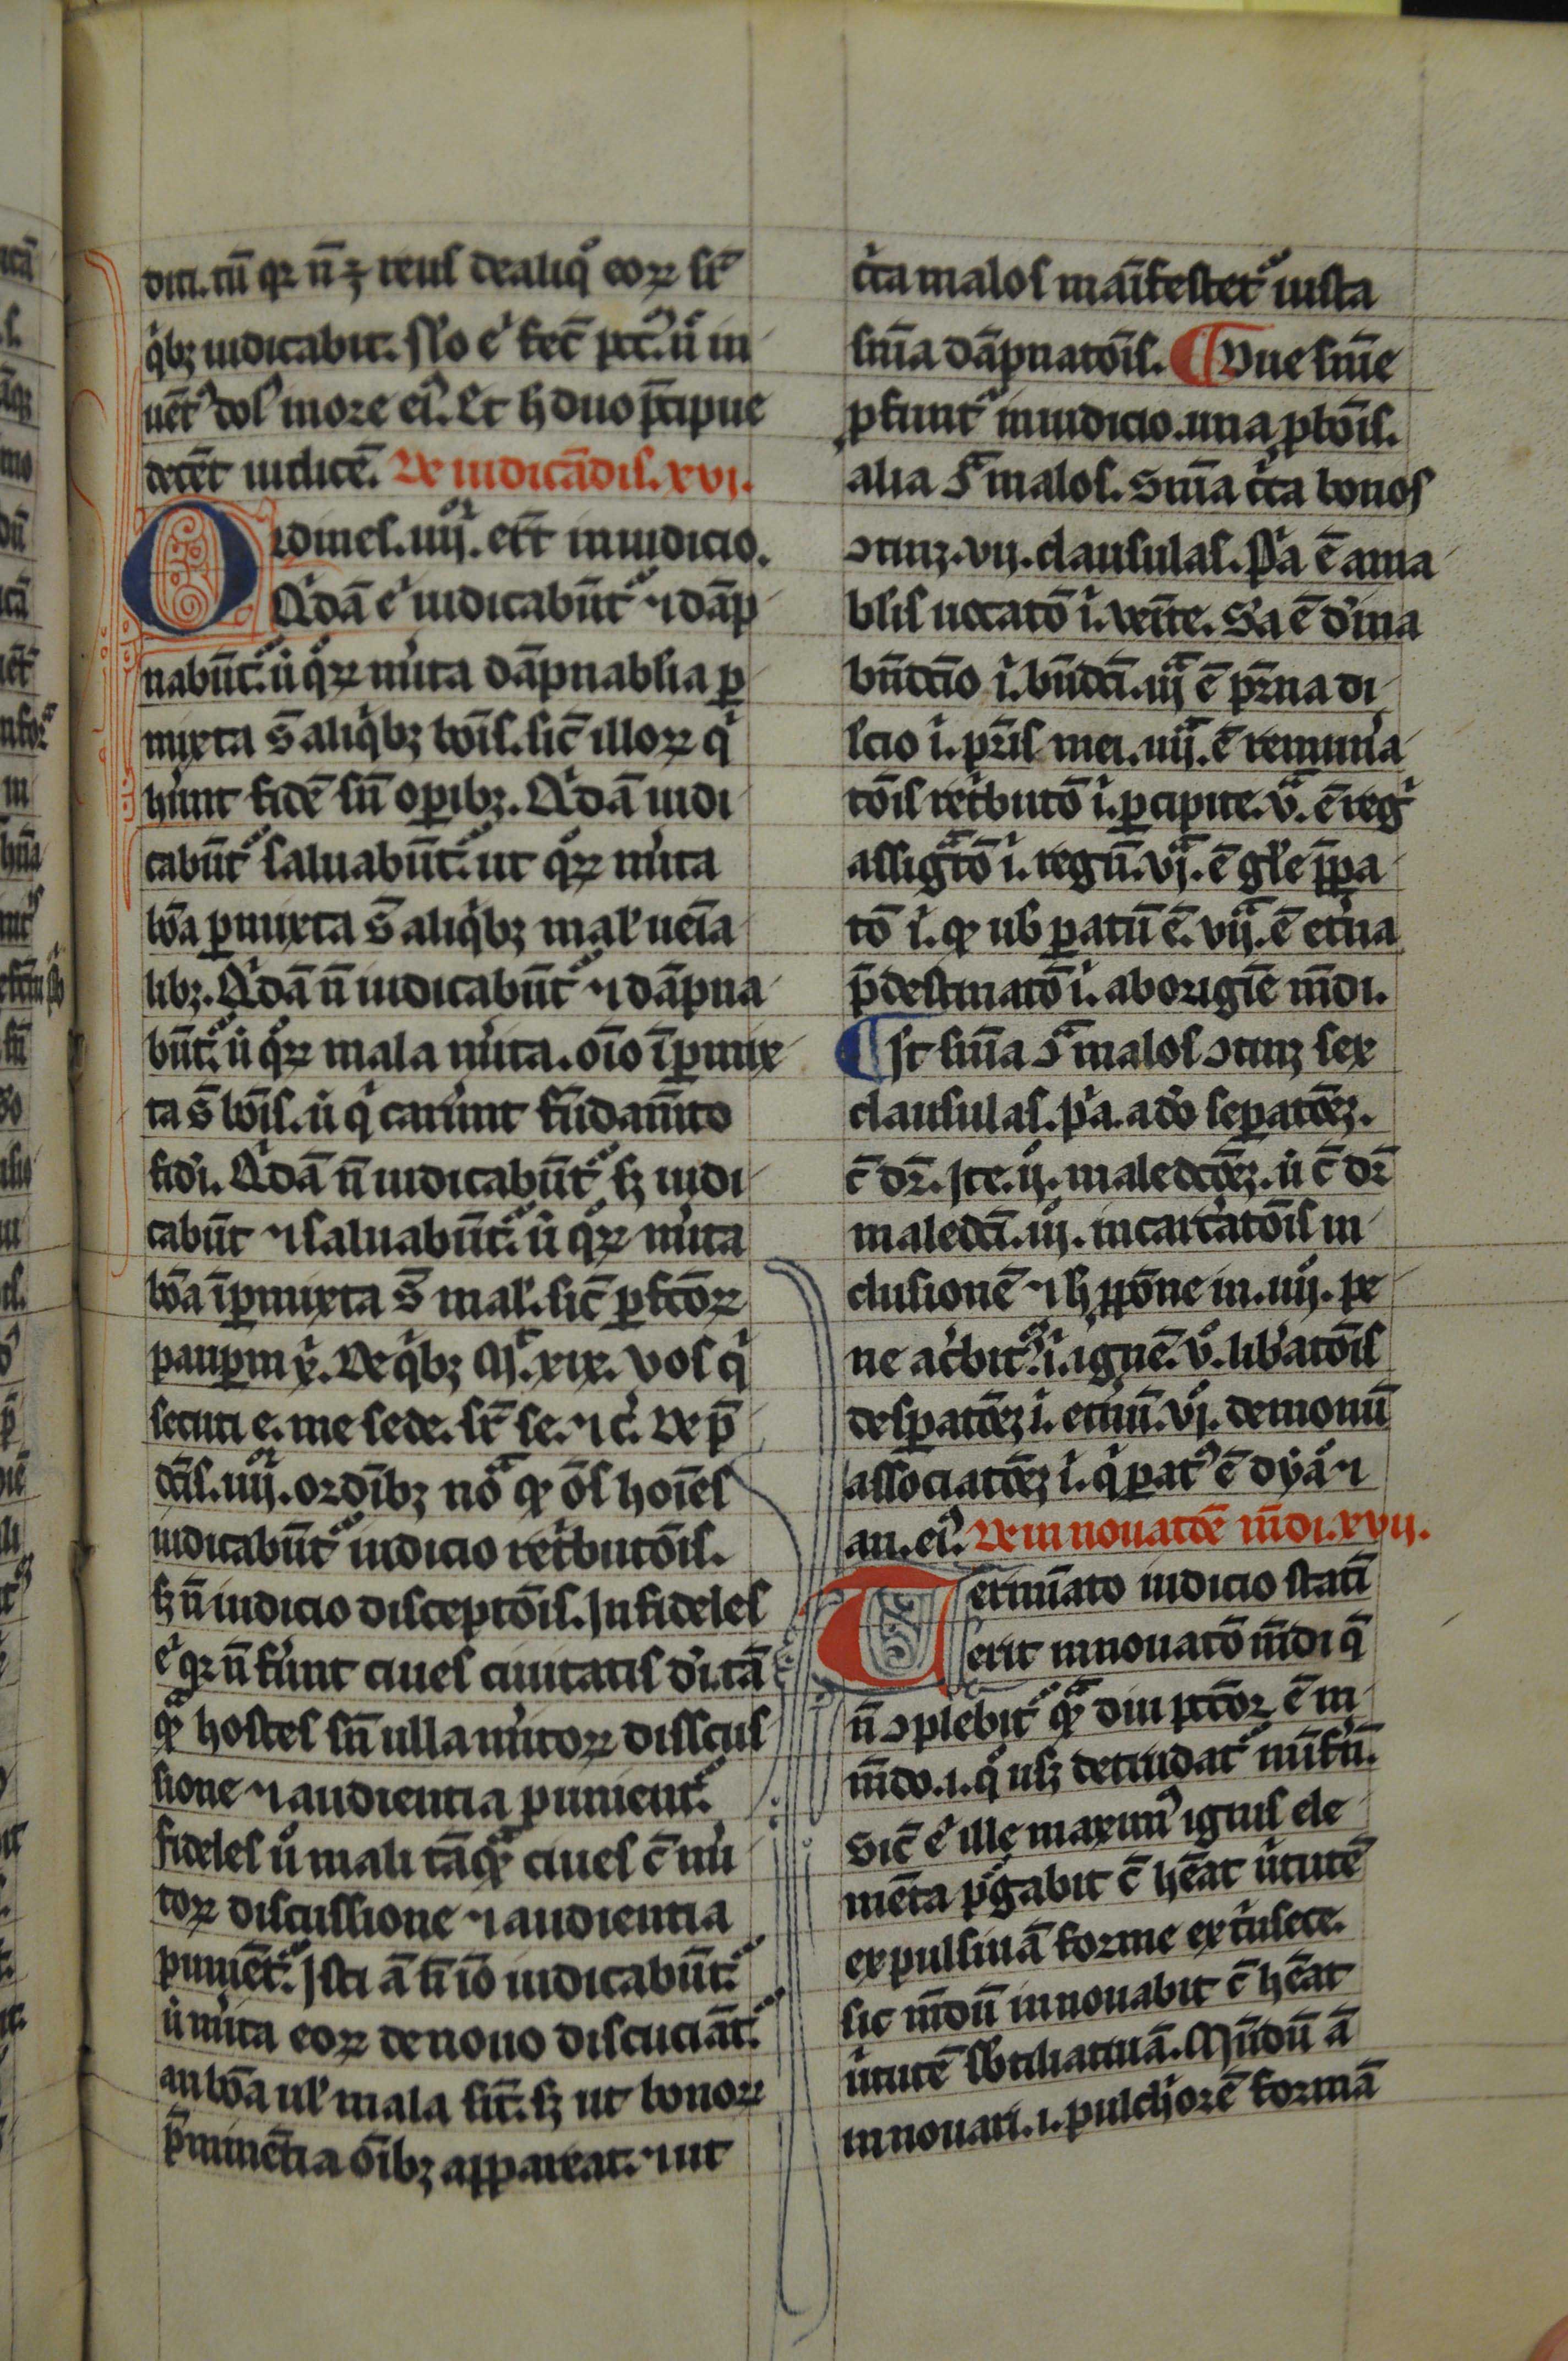 dici. tū qꝛ n̄ ꝫ reus de aliqͦ eoꝝ sīt
qͥbꝫ iudicabit. sͦlo eͥ fec̄ pcc̄. n̄ in
uētꝰ dolꝰ in ore eiꝰ. Et h̄ duo p̄cipue
decēt iudicē. De iudicādis. xvi.
Ordines. iiijͦꝛ. er̄t in iudicio.
Qͥdā eͥ iudicabūtᷣ ⁊ dāp
nabūtᷣ. ut qͦꝝ mͥita dāpnablia ꝑ
mixta s̄ aliqͥbꝫ bōis. sic̄ illoꝝ qͥ
hn̄t fidē sn̄ oꝑibꝫ. Qͥdā iudi
cabūtᷣ saluabūtᷣ. ut qͦꝝ mͥita
bōa ꝑmixta s̄ aliqͥbꝫ mal̓ uēia
libꝫ. Qͥdā n̄ iudicabūtᷣ ⁊ dāpna
būtᷣ. ut qͦꝝ mala mͥita. oīo īꝑmix
ta s̄ bōis. ut qͥ carūnt fūdamēto
fidͥi. Qͥdā n̄ iudicabūtᷣ sꝫ iudi
cabūt ⁊ saluabūtᷣ. ut qͦꝝ mͥita
bōa īꝑmixta s̄ mal̓. sic̄ ꝑfcōꝝ
pauꝑm xͥ. De qͥbꝫ Mͭ. xix. Vos qͥ
secuti e. me sede. sr̄ se. ⁊ c̓. De p̄
dc̄is. iiijͦꝛ. ordībꝫ noͣ qͩ ōs hoīes
iudicabūtᷣ iudicio retͥbutōis.
sꝫ n̄ iudicio disceptōis. Infideles
eͥ qꝛ n̄ fūnt ciues ciuitatis dͥi. tā
qͣꝫ hostes sn̄ ulla mͥitoꝝ disscus
sione ⁊ audientia punientᷣ.
fideles uͦ mali tāqͣꝫ ciues c̄ mͥi
toꝝ discussione ⁊ audientia
puniētᷣ. Isti ā n̄ iō iudicabūtᷣ.
ut mͥita eoꝝ de nouo discuciātᷣ.
an bōa ul̓ mala sīt. sꝫ ut bonoꝝ
p̄minētia ōibꝫ appareat. ⁊ ut
cͥca malos maīfestetᷣ iusta
sn̄ia dāpnatōis. ¶ Due sn̄ie
ꝓfūntᷣ in iudicio. una ꝓ bōis.
alia ꝯͣ malos. Sn̄ia cͥca bonos
ꝯtinꝫ. vii. clausulas. Pͥa ē ama
blis uocatō i. venīte. Sͣa ē dͥuina
bn̄dctīo i. bn̄dcī. iijͣ ē pr̄na di
lcio i. pr̄is mei. iiijͣ. ē remunͥa
tōis retͥbutō i. ꝑcipite. vͣ. ē regͥ
assigͣtō i. regn̄. vjͣ. ē gl̓e p̄ꝑa
tō i. qͩ ub ꝑatū ē. vijͣ. ē etͥna
p̄destinatō i. ab origīe mūdi.
¶ Ist sn̄ia ꝯͣ malos ꝯtinꝫ sex
clausulas. pͥa. a dō seꝑatōeꝫ.
c̄ dr̄. Ite. ij. maledctōeꝫ. ut c̄ dr̄
maledcī. iij. incarcͥatōis in
clusionē ⁊ h̄ p̄pōne in. iiij. pe
ne acͥbitᷣ. i. ignē. vͦ. libͥatōis
desꝑatōeꝫ i. etͥnū. vj. demonū
associatōeꝫ i. qͥ ꝑatꝰ ē dyaͦ ⁊
an. eiꝰ. De in nouatōe mūdi. xvij.
Terminato iudicio statī
erit innouatō mūdi qͣ
n̄ ꝯplebitᷣ qͣꝫ diu pctōr̄ ē in
mūdo. i. qͦ usꝫ detrudatᷣ in īfn̄.
Sic̄ eͥ ille maximꝰ ignis ele
mēta pͥgabit c̄ hēat ūtutē
expulsiuā forme extͥnsece.
sic mūdū innouabit c̄ hēat
ūtutē sb̓tiliatiuā. Mūdū ā
innouari. i. pulchͥorē formā